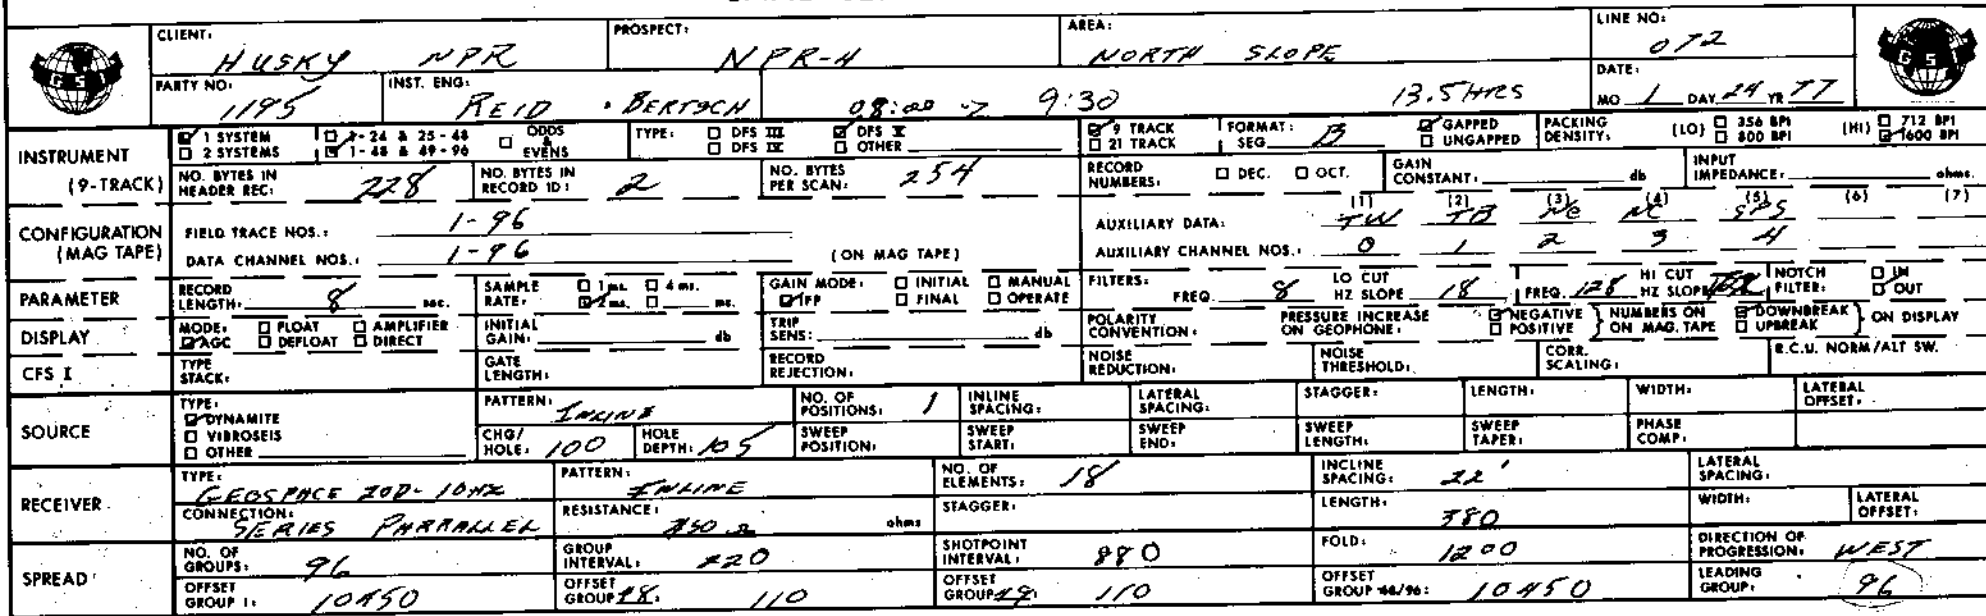 CLIENT: HUSKY NPR PROSPECT: NPR-4 AREA: NORTH SLOPE LINE NO: 072
GSI
PARTY NO: 1195 INST. ENG: REID · BERTSCH 08:00 -> 9:30 13.5 HRS DATE: MO 1 DAY 24 YR 77
INSTRUMENT (9-TRACK)
☑ 1 SYSTEM ☐ 1-24 & 25-48 ☐ ODDS & EVENS TYPE: ☐ DFS III ☑ DFS V ☑ 9 TRACK FORMAT: SEG B ☑ GAPPED PACKING DENSITY: (LO) ☐ 356 BPI (HI) ☐ 712 BPI
☐ 2 SYSTEMS ☑ 1-48 & 49-96 ☐ DFS IV ☐ OTHER ☐ 21 TRACK ☐ UNGAPPED ☐ 800 BPI ☑ 1600 BPI
NO. BYTES IN HEADER REC: 228 NO. BYTES IN RECORD ID: 2 NO. BYTES PER SCAN: 254 RECORD NUMBERS: ☐ DEC. ☐ OCT. GAIN CONSTANT: db INPUT IMPEDANCE: ohms.
CONFIGURATION (MAG TAPE)
FIELD TRACE NOS.: 1-96 AUXILIARY DATA: (1) TW (2) TB (3) NC (4) NC (5) SPS (6) (7)
DATA CHANNEL NOS.: 1-96 (ON MAG TAPE) AUXILIARY CHANNEL NOS.: 0 1 2 3 4
PARAMETER
RECORD LENGTH: 8 sec. SAMPLE RATE: ☐ 1 ms. ☐ 4 ms. ☑ 2 ms. ☐ ms. GAIN MODE: ☐ INITIAL ☐ MANUAL ☑ IFP ☐ FINAL ☐ OPERATE FILTERS: FREQ. 8 LO CUT HZ SLOPE 18 FREQ. 128 HI CUT HZ SLOPE NOTCH FILTER: ☐ IN ☑ OUT
DISPLAY
MODE: ☐ FLOAT ☐ AMPLIFIER ☑ AGC ☐ DEFLOAT ☐ DIRECT INITIAL GAIN: db TRIP SENS: db POLARITY CONVENTION: PRESSURE INCREASE ON GEOPHONE: ☑ NEGATIVE ☐ POSITIVE } NUMBERS ON ON MAG. TAPE ☑ DOWNBREAK ☐ UPBREAK } ON DISPLAY
CFS I
TYPE STACK: GATE LENGTH: RECORD REJECTION: NOISE REDUCTION: NOISE THRESHOLD: CORR. SCALING: R.C.U. NORM/ALT SW.
SOURCE
TYPE: ☑ DYNAMITE ☐ VIBROSEIS ☐ OTHER PATTERN: INLINE NO. OF POSITIONS: 1 INLINE SPACING: LATERAL SPACING: STAGGER: LENGTH: WIDTH: LATERAL OFFSET:
CHG/HOLE: 100 HOLE DEPTH: 105 SWEEP POSITION: SWEEP START: SWEEP END: SWEEP LENGTH: SWEEP TAPER: PHASE COMP:
RECEIVER
TYPE: GEOSPACE 20D-10HZ PATTERN: INLINE NO. OF ELEMENTS: 18 INCLINE SPACING: 22' LATERAL SPACING:
CONNECTION: SERIES PARRALLEL RESISTANCE: ohms STAGGER: LENGTH: 380 WIDTH: LATERAL OFFSET:
SPREAD
NO. OF GROUPS: 96 GROUP INTERVAL: 220 SHOTPOINT INTERVAL: 880 FOLD: 1200 DIRECTION OF PROGRESSION: WEST
OFFSET GROUP 1: 10450 OFFSET GROUP 48: 110 OFFSET GROUP 49: 110 OFFSET GROUP 48/96: 10450 LEADING GROUP: 96